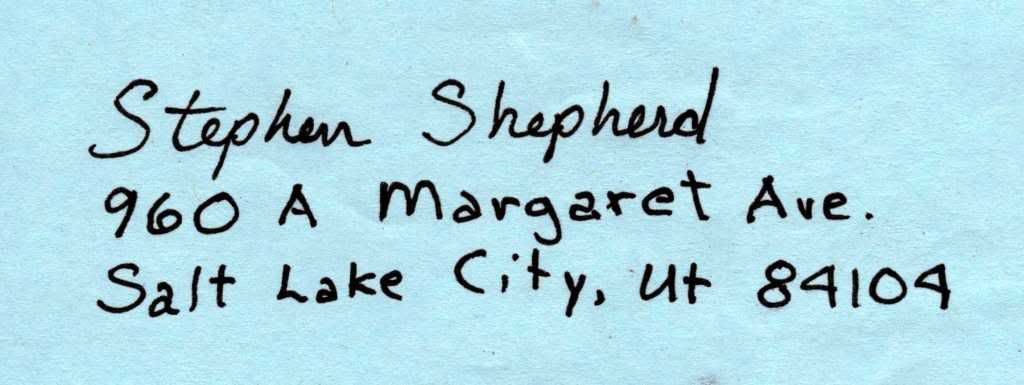 Stephen Shepherd
960 A Margaret Ave.
Salt Lake City, Ut 84104